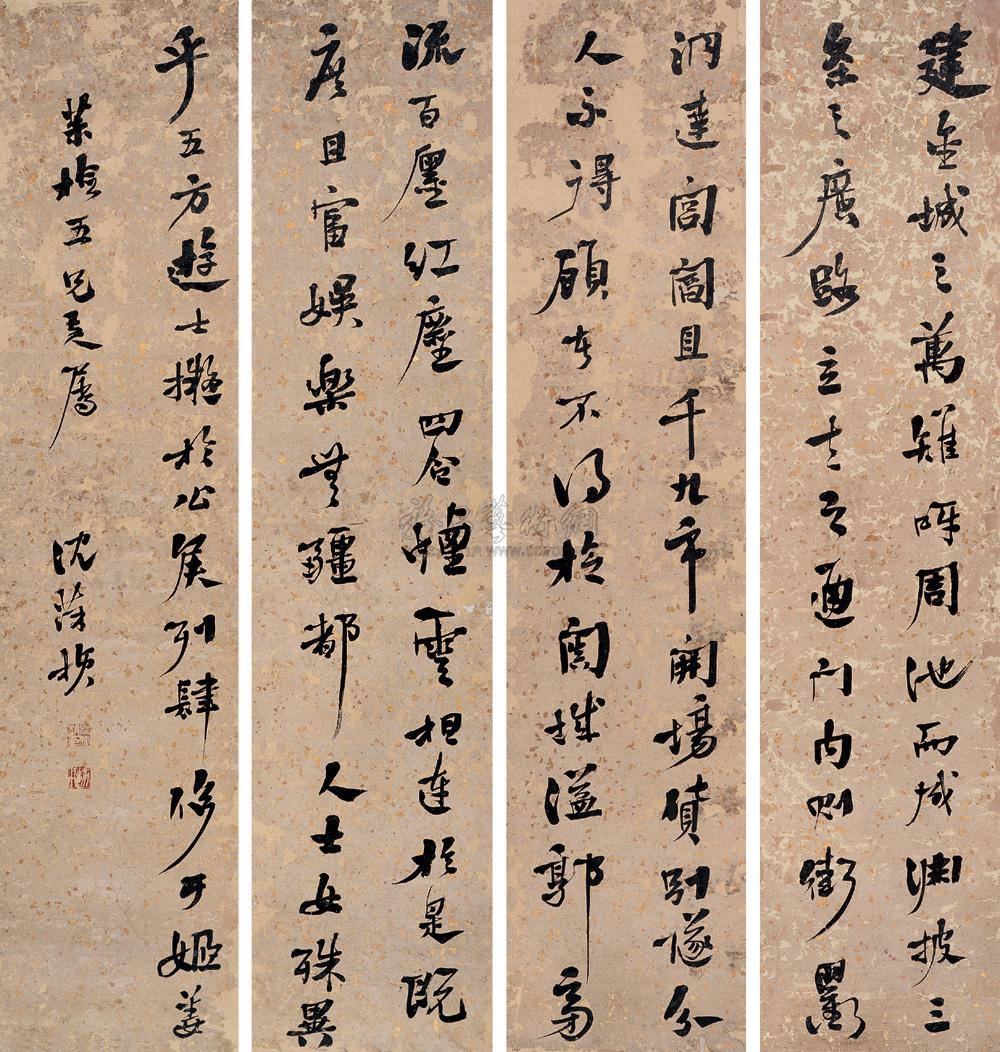 建金城之萬雉呀周池而城淵披三
條之廣路立十二之通門內則街衢
洞達閭閻且千九市開場貨別隧分
人不得顧車不得旋闐城溢郭旁
流百廛紅塵四合煙雲相連於是既
庶且富娛樂無疆都人士女殊異
乎五方遊士擬於公侯列肆侈于姬姜
五兄 沈